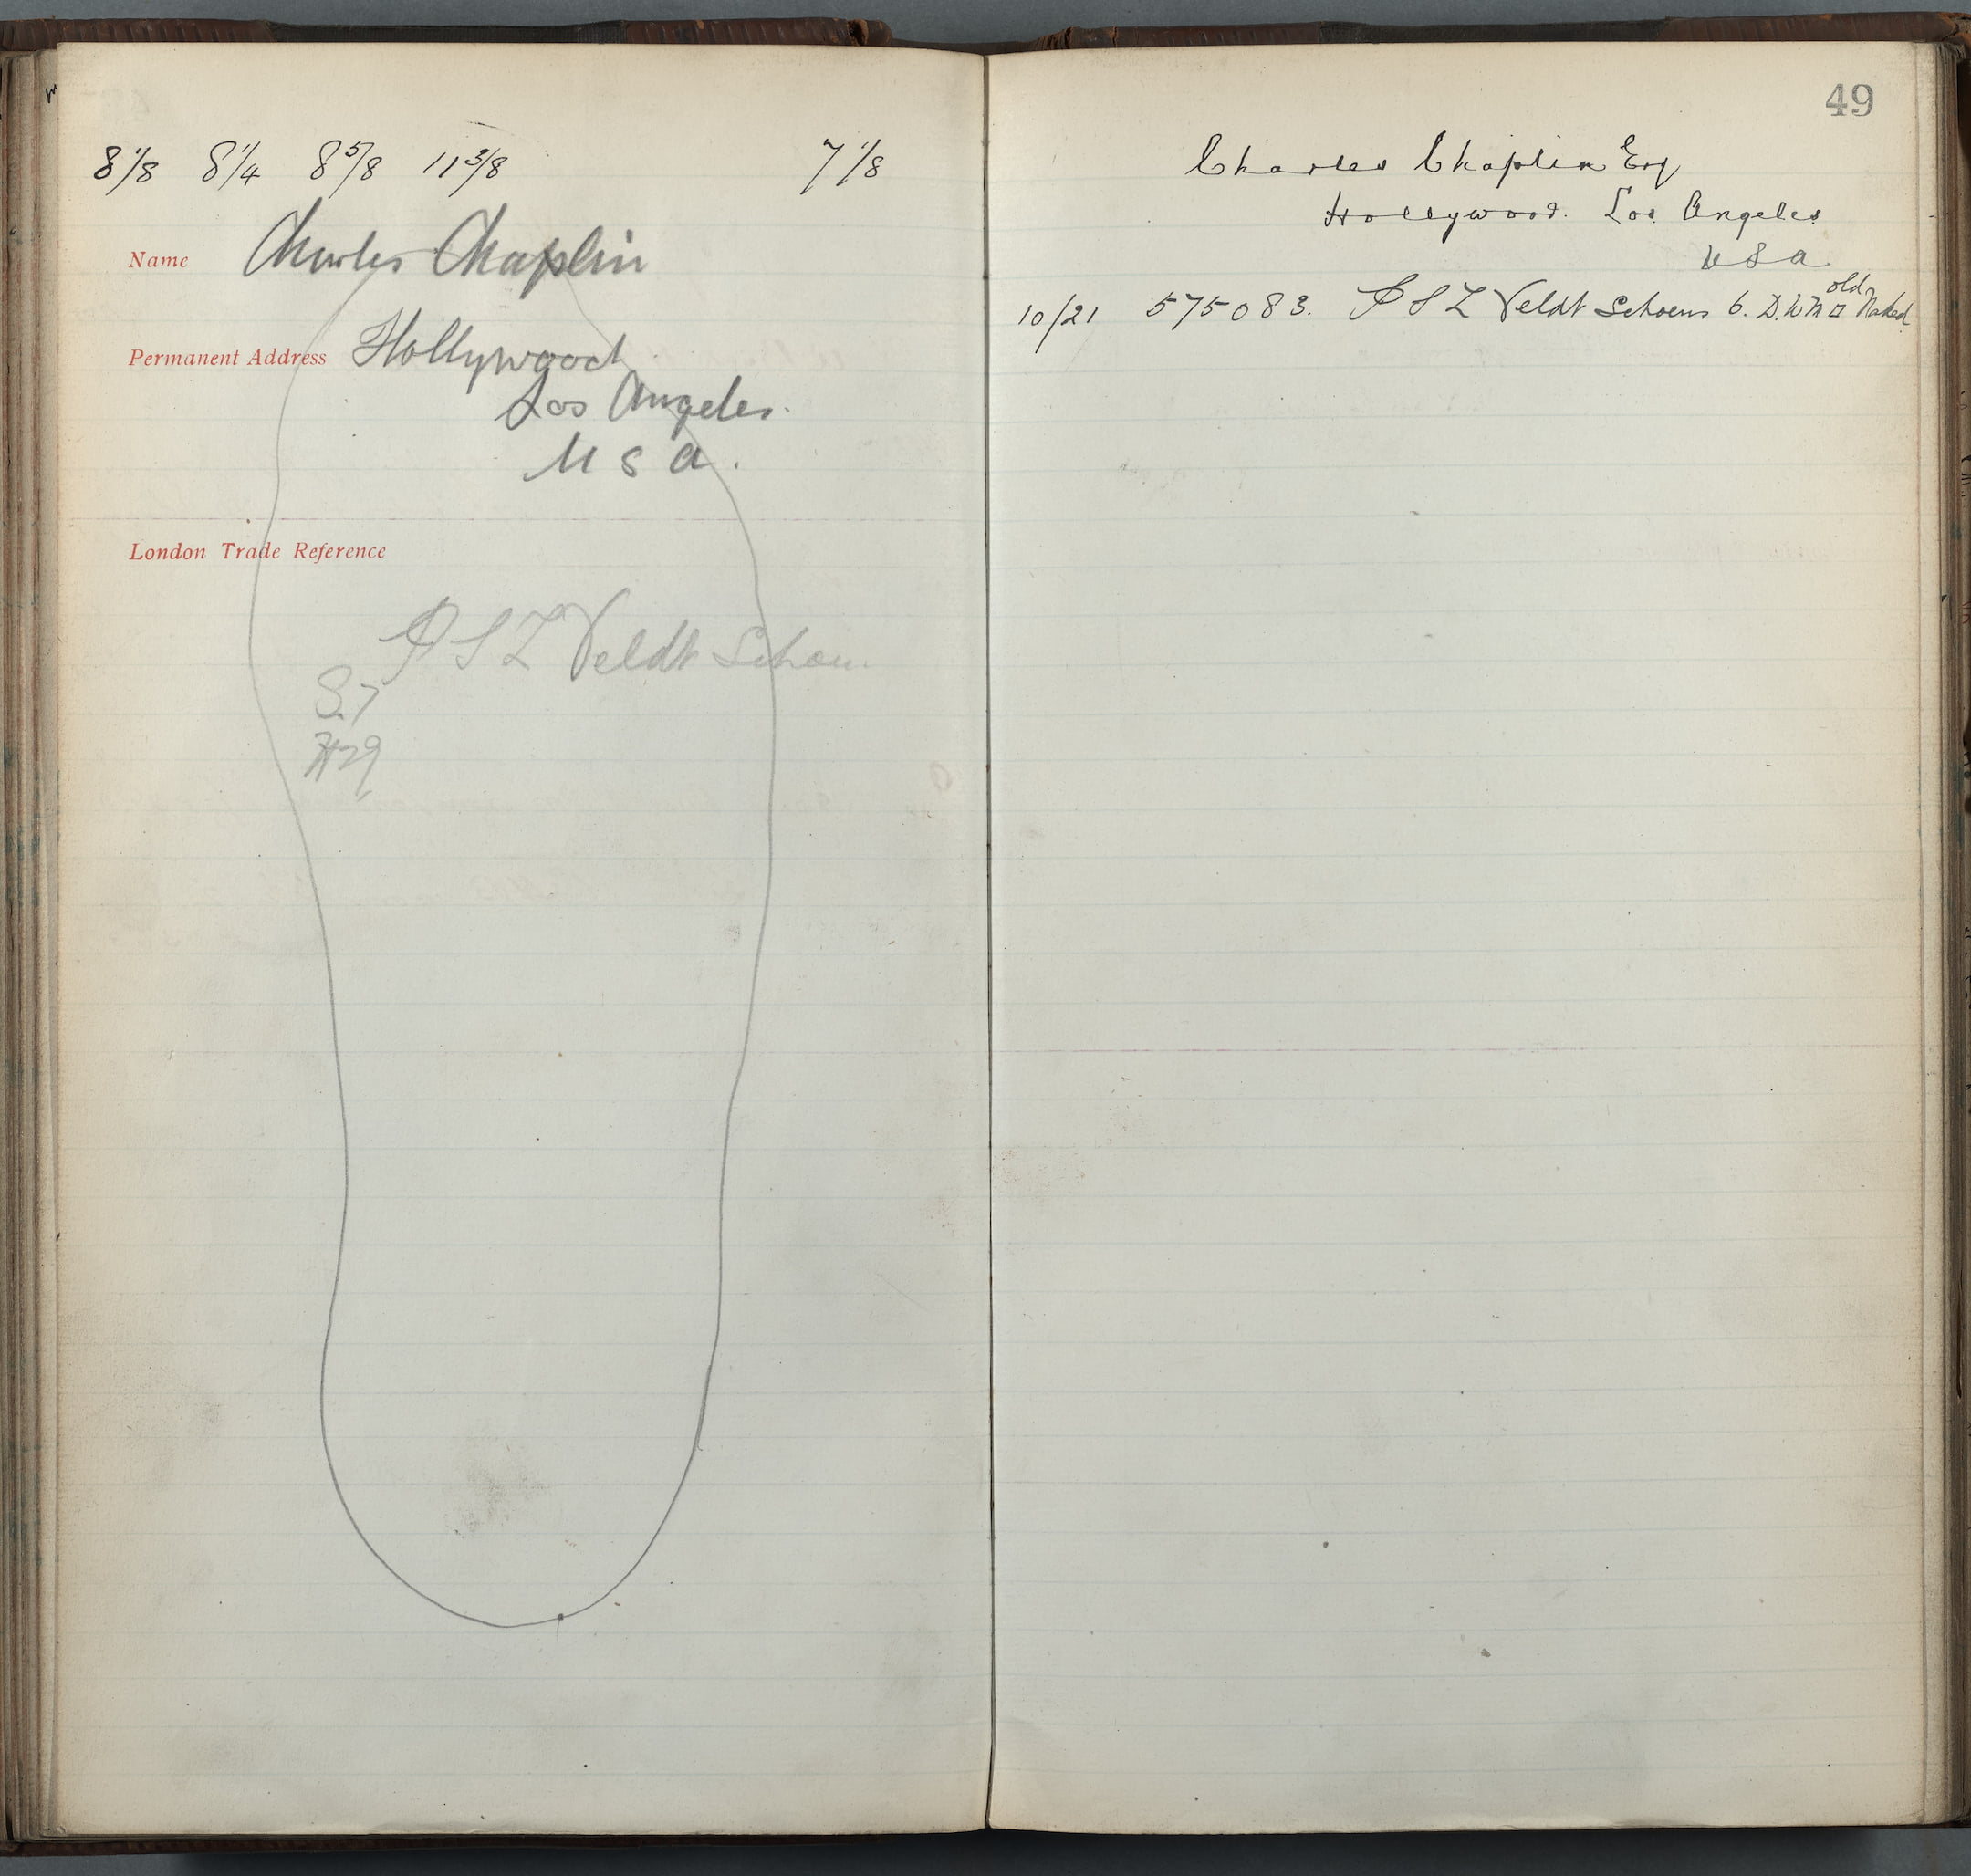 8 1/8 8 1/4 8 5/8 11 3/8 7 1/8
Name Charles Chaplin
Permanent Address Hollywood
Los Angeles.
U S A.
London Trade Reference
P S L Veldt Schoen
S.7
49
Charles Chaplin Esq
Hollywood. Los Angeles
U S A
10/21 575083. P S L Veldt Schoens 6. D.W.M old Naked